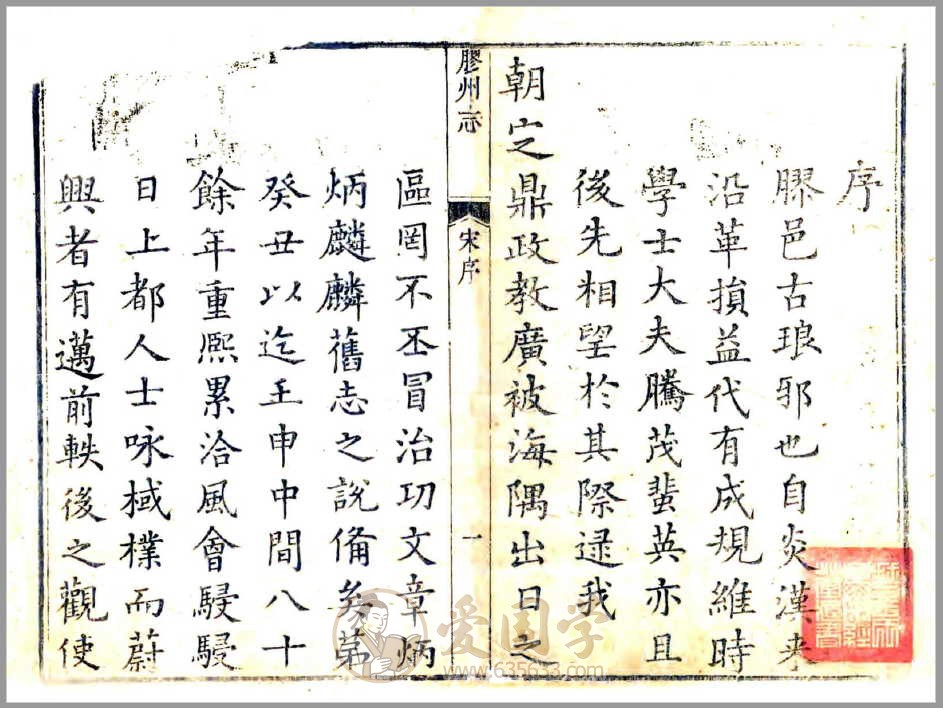 序
膠邑古琅邪也自炎漢来
沿革損益代有成規維時
學士大夫騰茂蜚英亦且
後先相望於其際逯我
朝定鼎政教廣被海隅出日之
膠州志
宋序
一
區罔不丕冒治功文章炳
炳麟麟舊志之說備矣第
癸丑以迄壬申中間八十
餘年重熙累洽風會駸駸
日上都人士咏棫樸而蔚
興者有邁前軼後之觀使
爱国学
www.635653.com